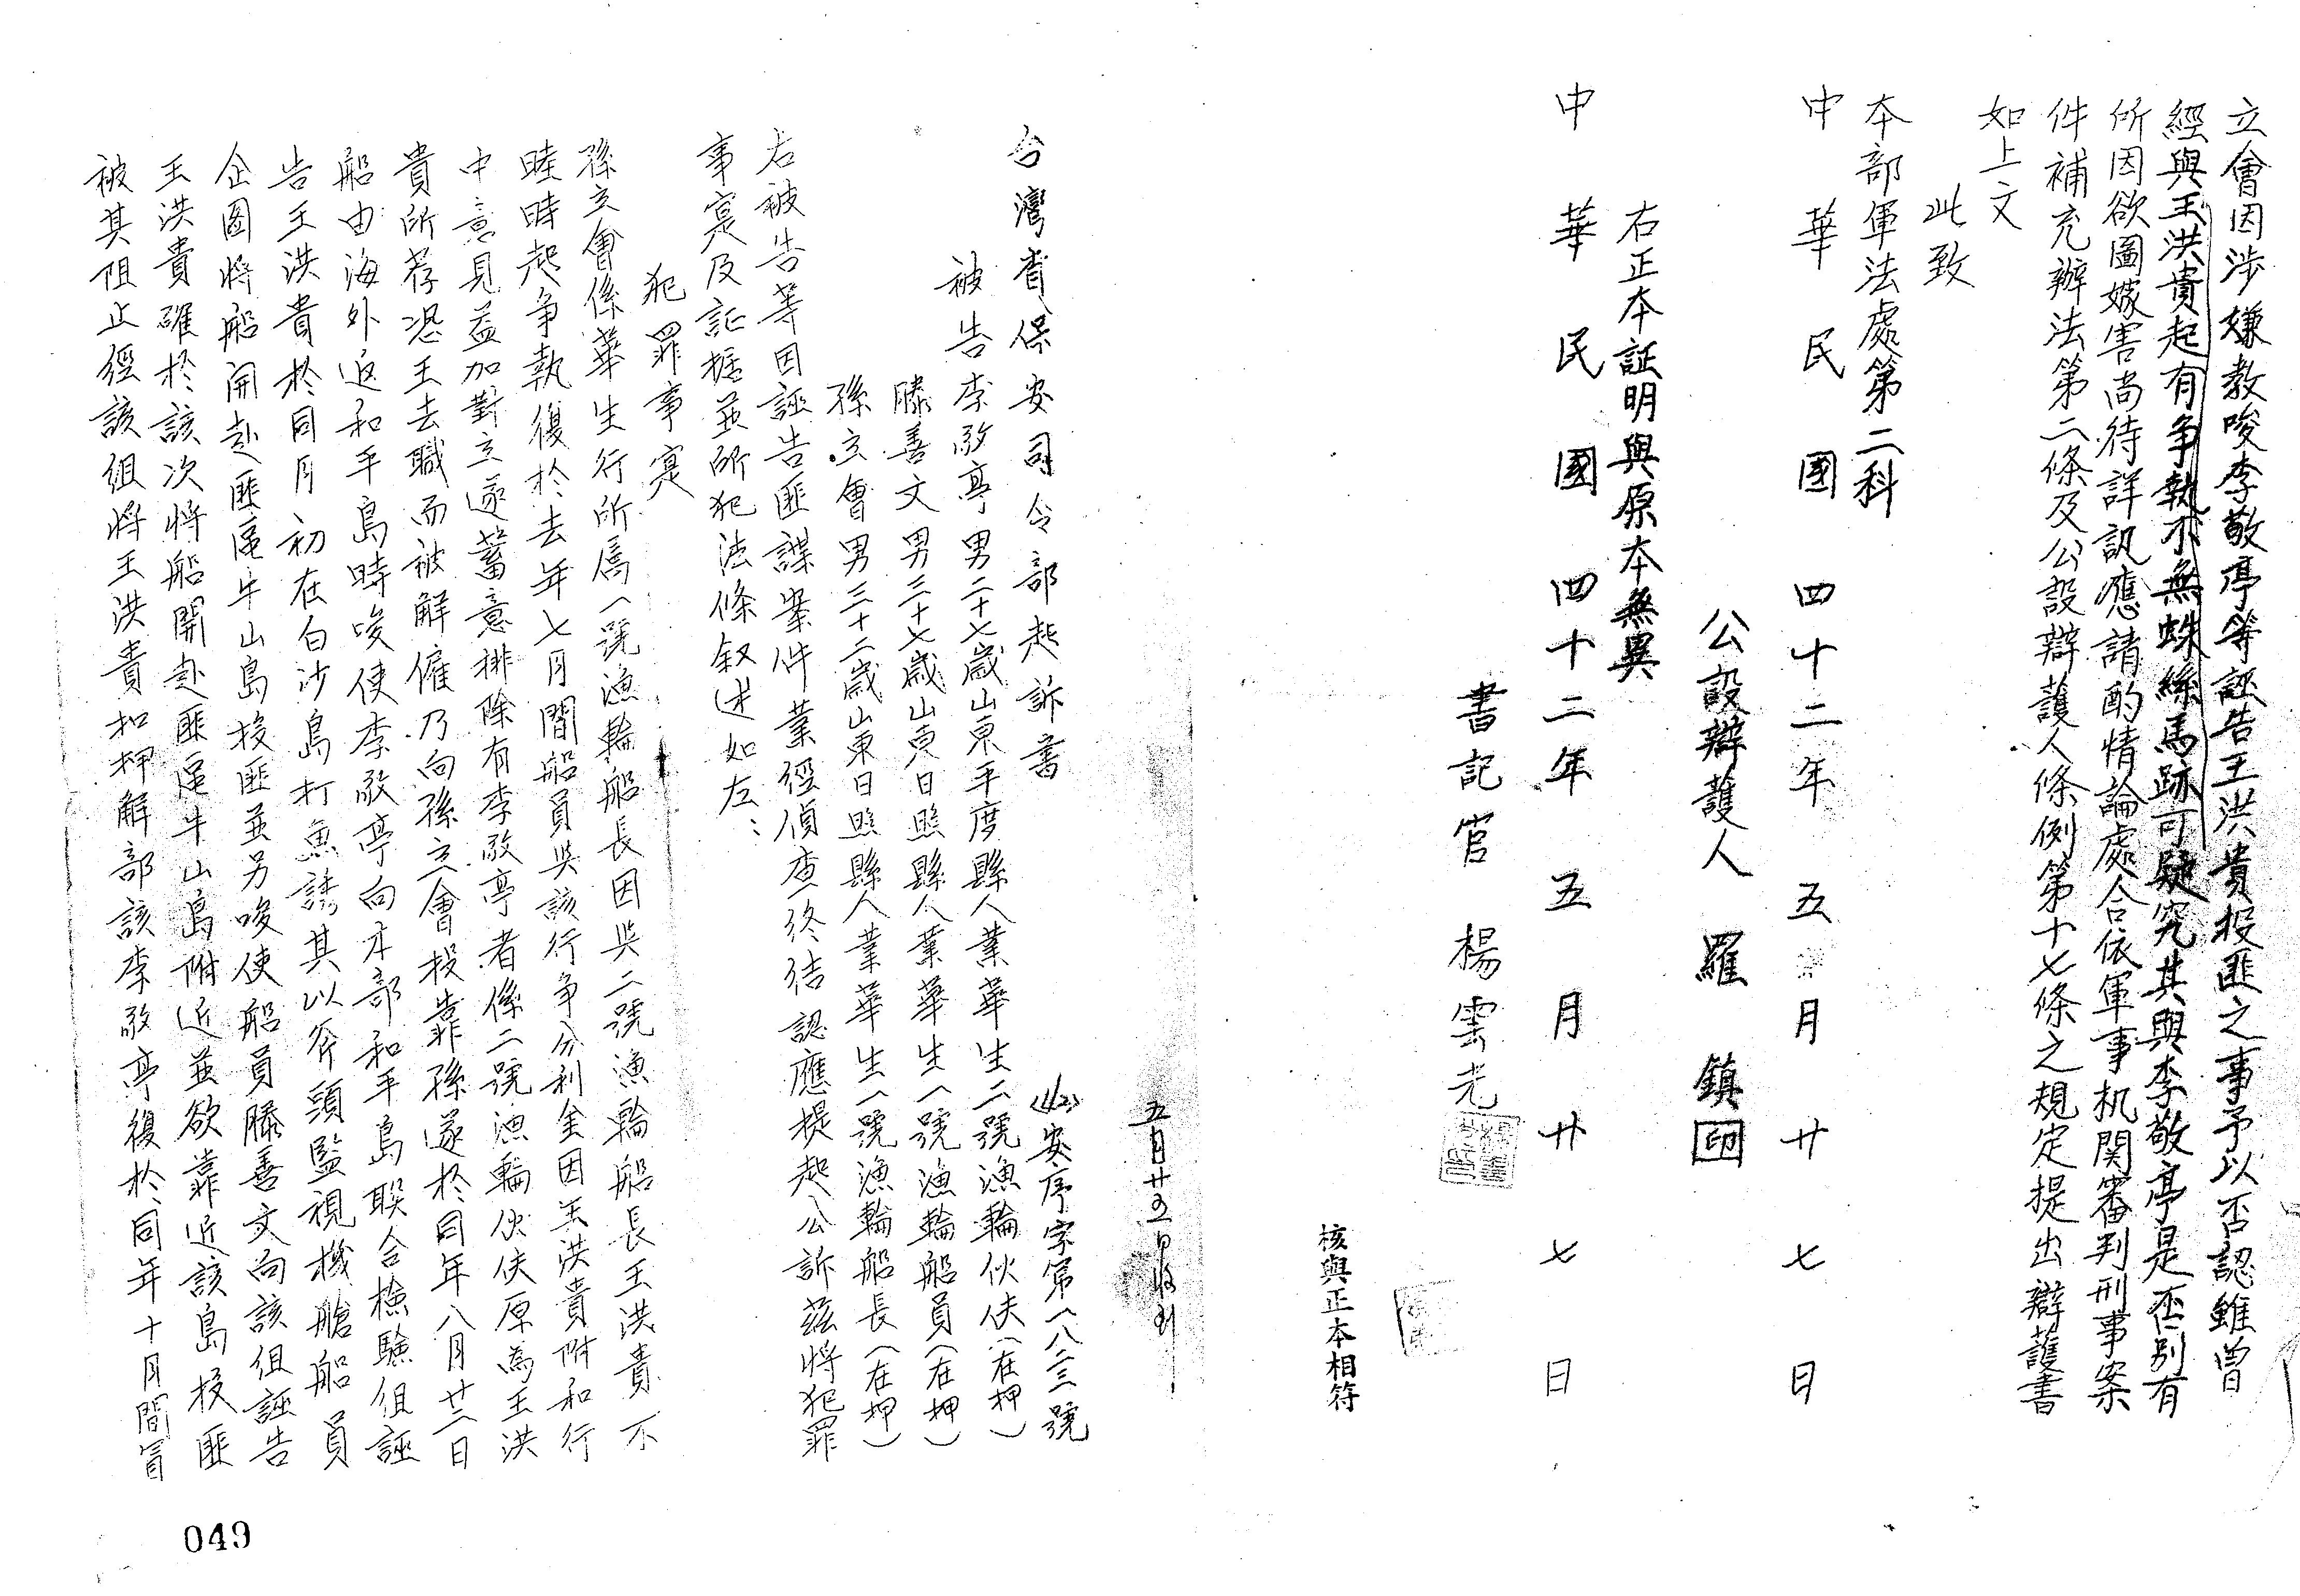 立會因涉嫌教唆李敬亭等誣告王洪貴投匪之事予以否認雖曾
經與王洪貴起有爭執不無蛛絲馬跡可疑究其與李敬亭是否別有
所因欲圖嫁害尚待詳訊應請酌情論處合依軍事机関審判刑事案
件補充辦法第二條及公設辯護人條例第十七條之規定提出辯護書
如上文
此致
本部軍法處第二科
中華民國四十二年五月廿七日
公設辯護人 羅鎮 印
右正本証明與原本無異
中華民國四十二年五月廿七日
書記官 楊雲光
核與正本相符
五月廿五日收到
(42)安序字第一八三號
台灣省保安司令部起訴書
被告李敬亭男二十七歲山東平度縣人業華生二號漁輪伙伕(在押)
滕善文男三十七歲山東日照縣人業華生一號漁輪船員(在押)
孫立會男三十二歲山東日照縣人業華生一號漁輪船長(在押)
右被告等因誣告匪諜案件業經偵查終結認應提起公訴茲將犯罪
事寔及証據並所犯法條叙述如左:
犯罪事寔
孫立會係華生行所屬一號漁輪船長因與二號漁輪船長王洪貴不
睦時起争執復於去年七月間船員與該行争分利金因王洪貴附和行
中意見益加對立遂蓄意排除有李敬亭者係二號漁輪伙伕原為王洪
貴所荐恐王去職而被解僱乃向孫立會投靠孫遂於同年八月廿二日
船由海外返和平島時唆使李敬亭向本部和平島联合檢驗組誣
告王洪貴於同月初在白沙島打魚誘其以斧頭監視機艙船員
企圖將船開赴匪區牛山島投匪並另唆使船員滕善文向該組誣告
王洪貴確於該次將船開赴匪區牛山島附近並欲靠近該島投匪
被其阻止經該組將王洪貴扣押解部該李敬亭復於同年十月間冒
049